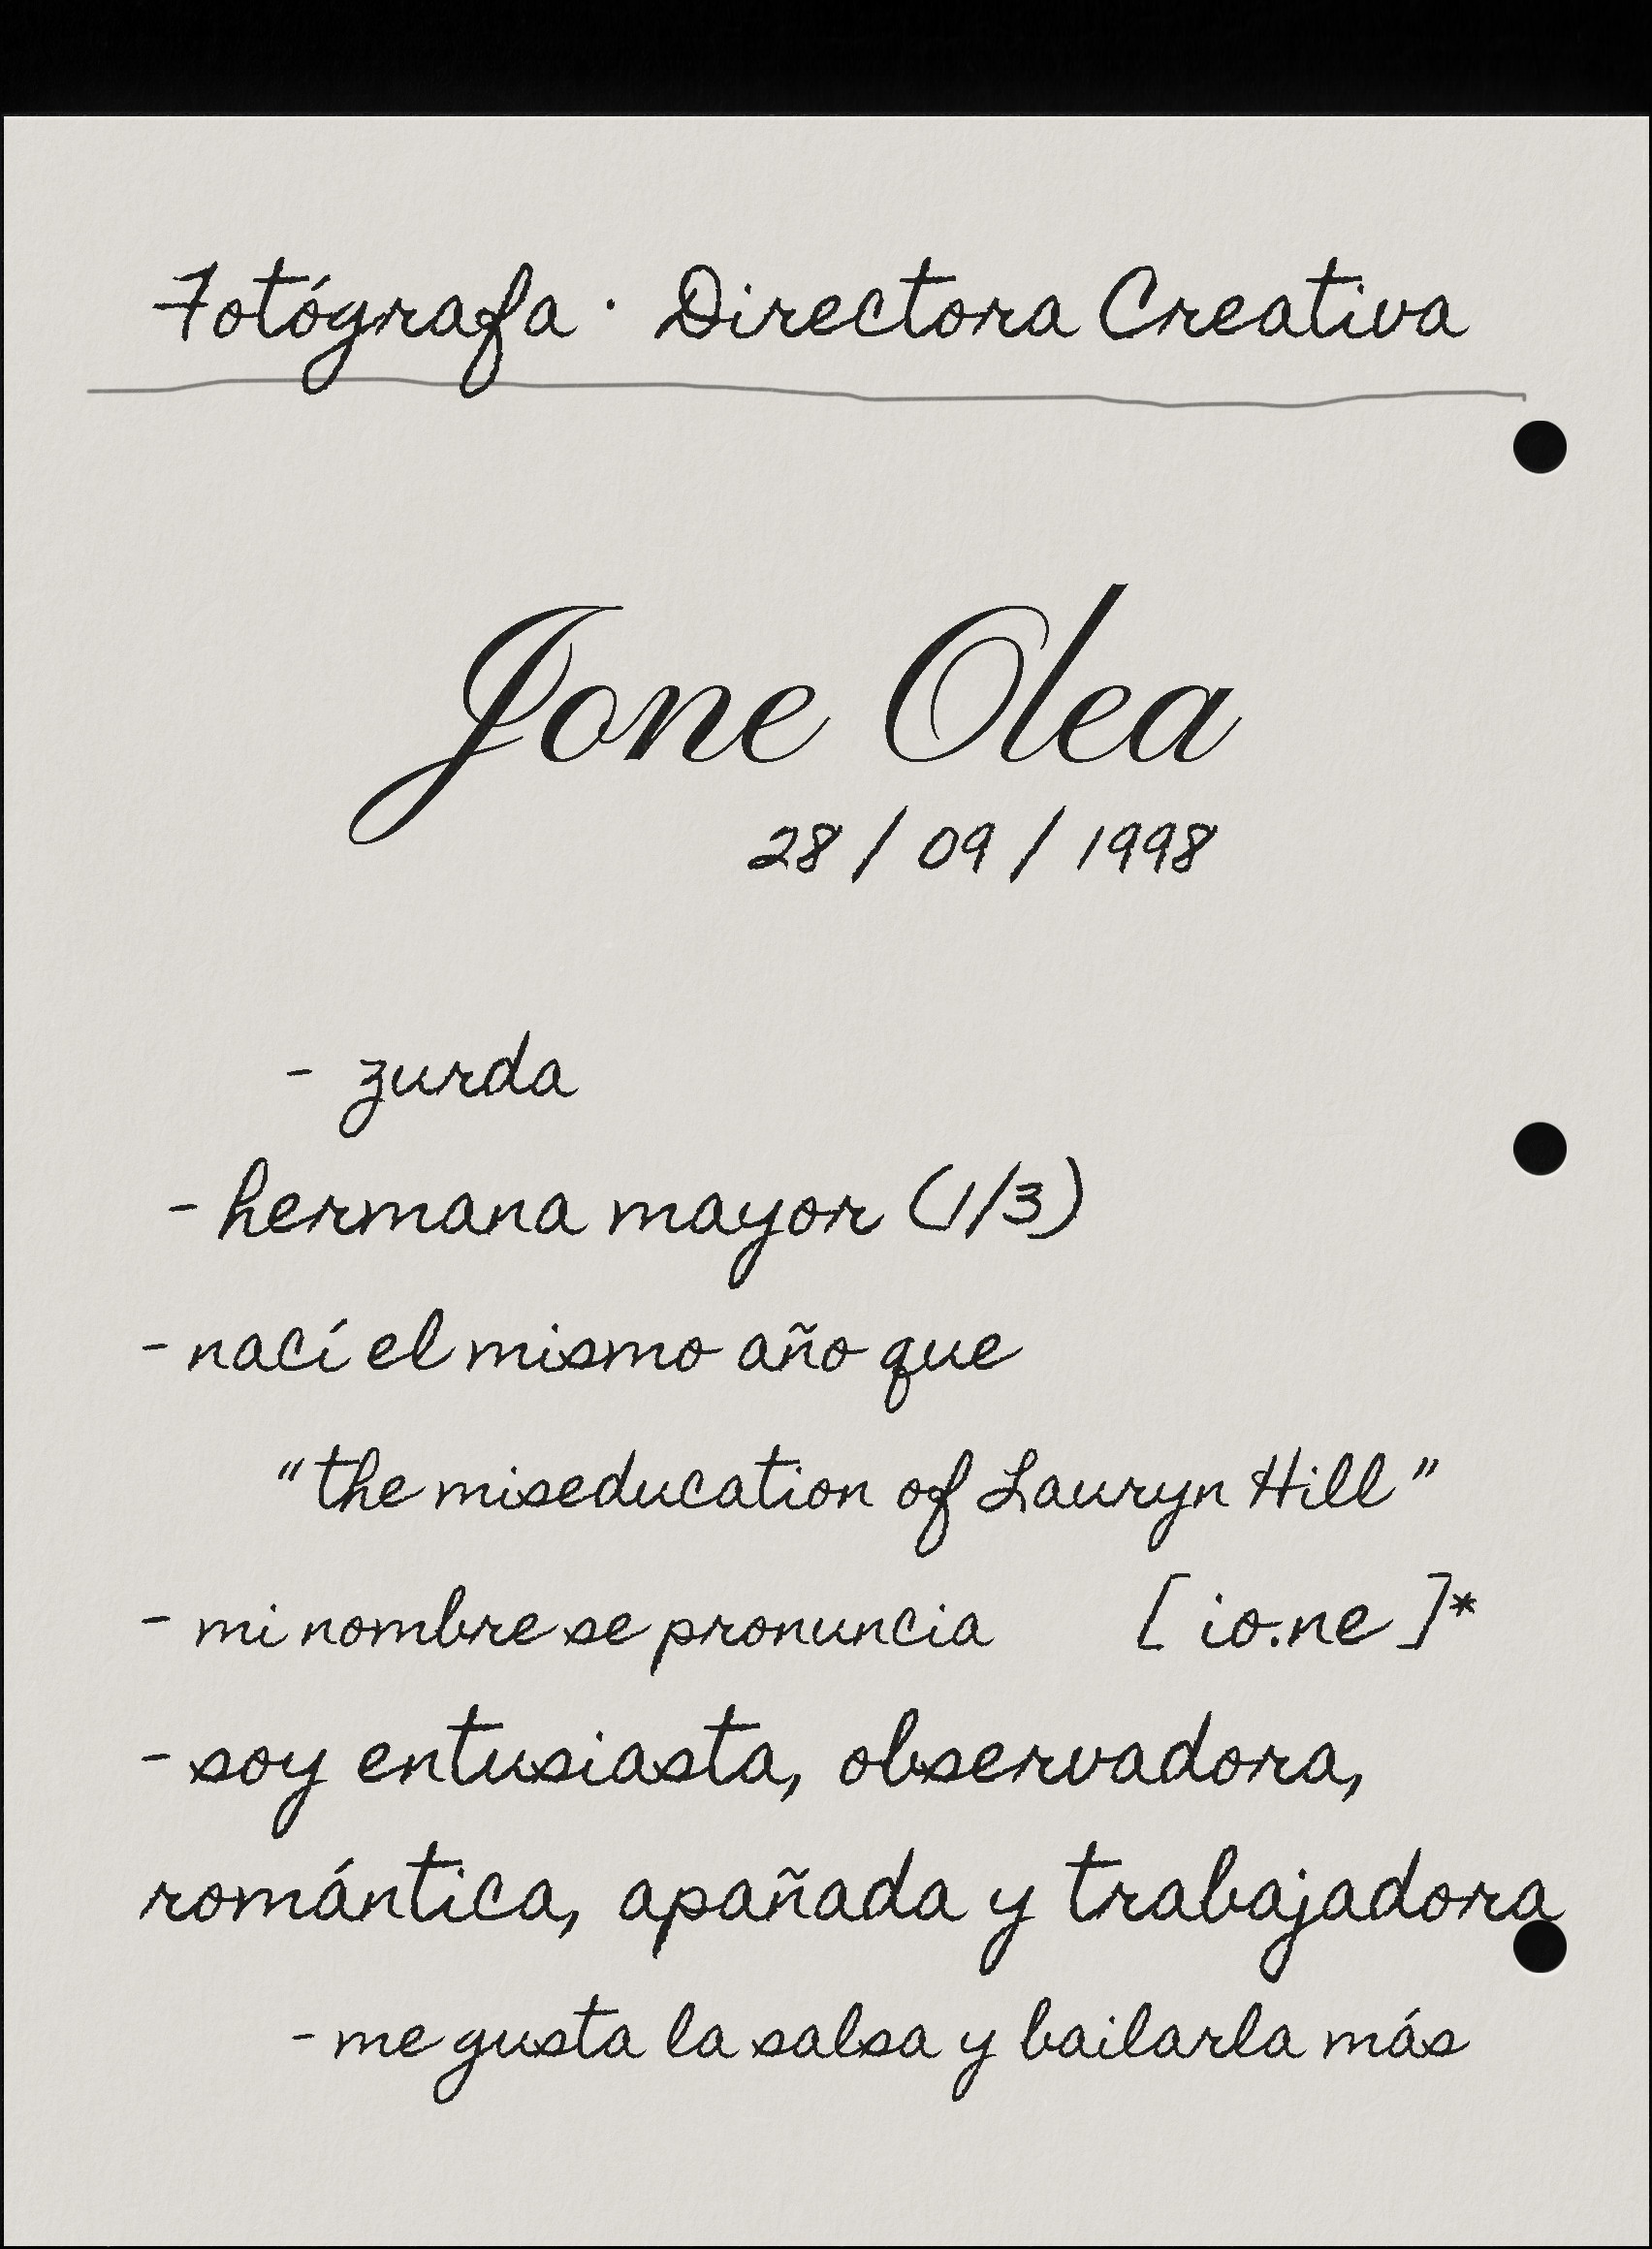 Fotógrafa · Directora Creativa
Jone Olea
28 / 09 / 1998
- zurda
- hermana mayor (1/3)
- nací el mismo año que
"the miseducation of Lauryn Hill"
- mi nombre se pronuncia [ io.ne ]*
- soy entusiasta, observadora,
romántica, apañada y trabajadora
- me gusta la salsa y bailarla más